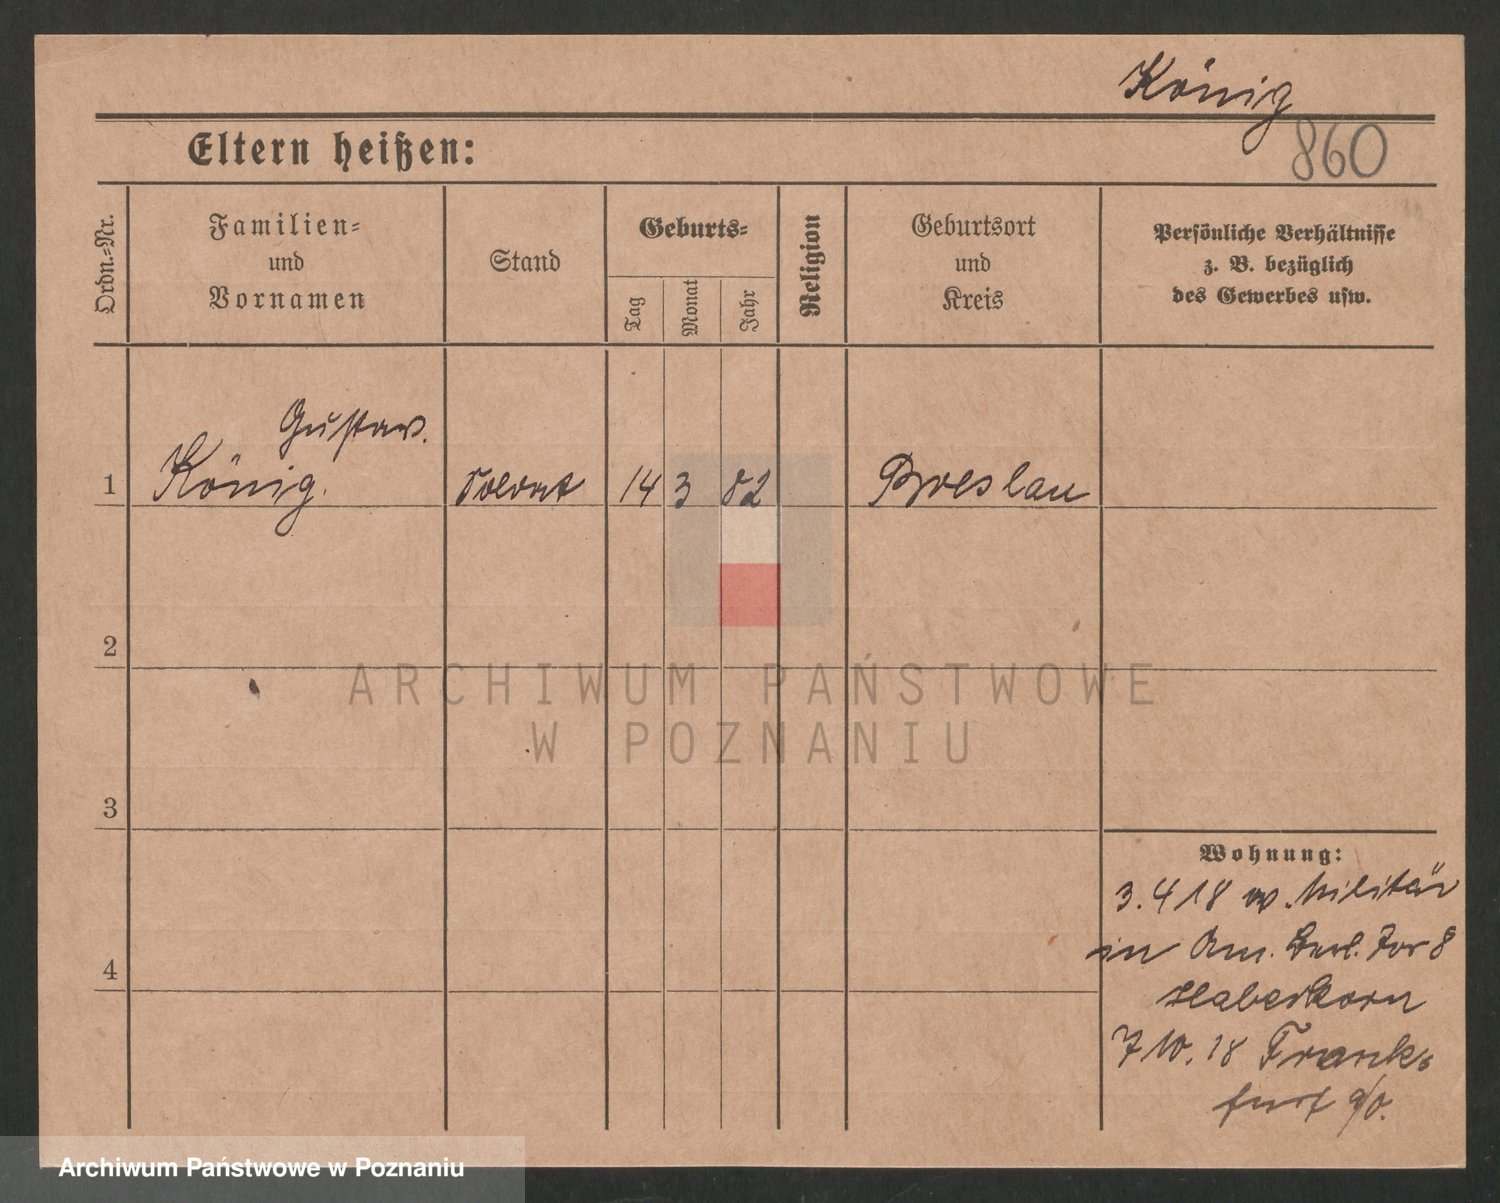 König
860
Eltern heißen:
Ordn.-Nr.
Familien= und Vornamen
Stand
Geburts=
Tag
Monat
Jahr
Religion
Geburtsort und Kreis
Persönliche Verhältnisse
z. B. bezüglich
des Gewerbes usw.
Gustav.
1 König. 14 3 82 Breslau
2
ARCHIWUM PAŃSTWOWE
W POZNANIU
3
Wohnung:
3.4 18 v. Militär
4
in Am. Berl. Tor 8
Haberkorn
7 10. 18 Frank=
furt a/O.
Archiwum Państwowe w Poznaniu